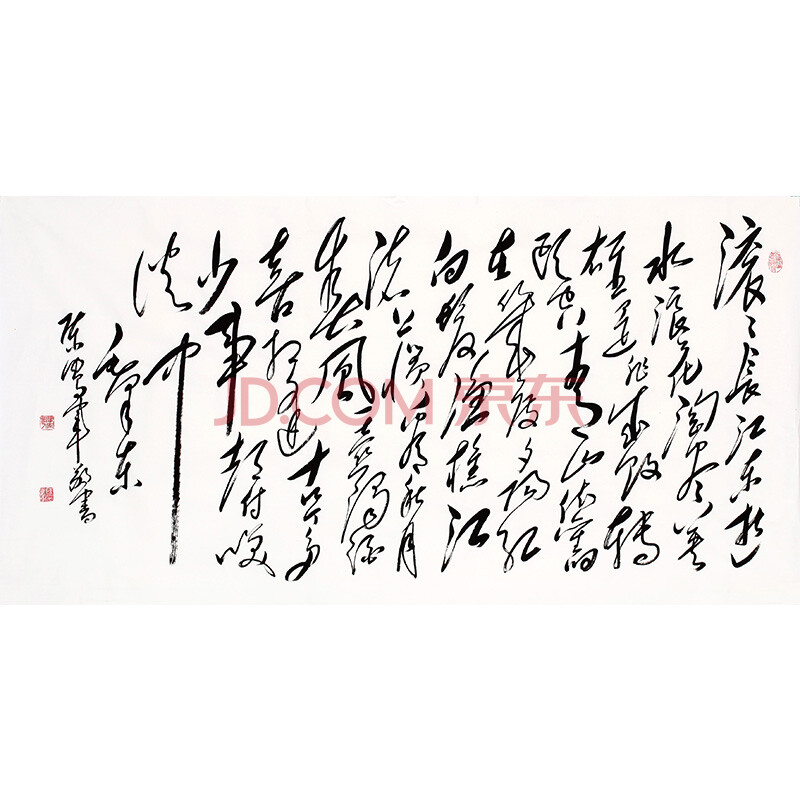 滚滚长江东逝
水浪花淘尽英
雄是非成败转
头空青山依旧
在几度夕阳红
白发渔樵江
渚上惯看秋月
春风一壶浊酒
喜相逢古今多
少事都付笑
谈中
毛泽东
陈军敬书
JD.COM 京东